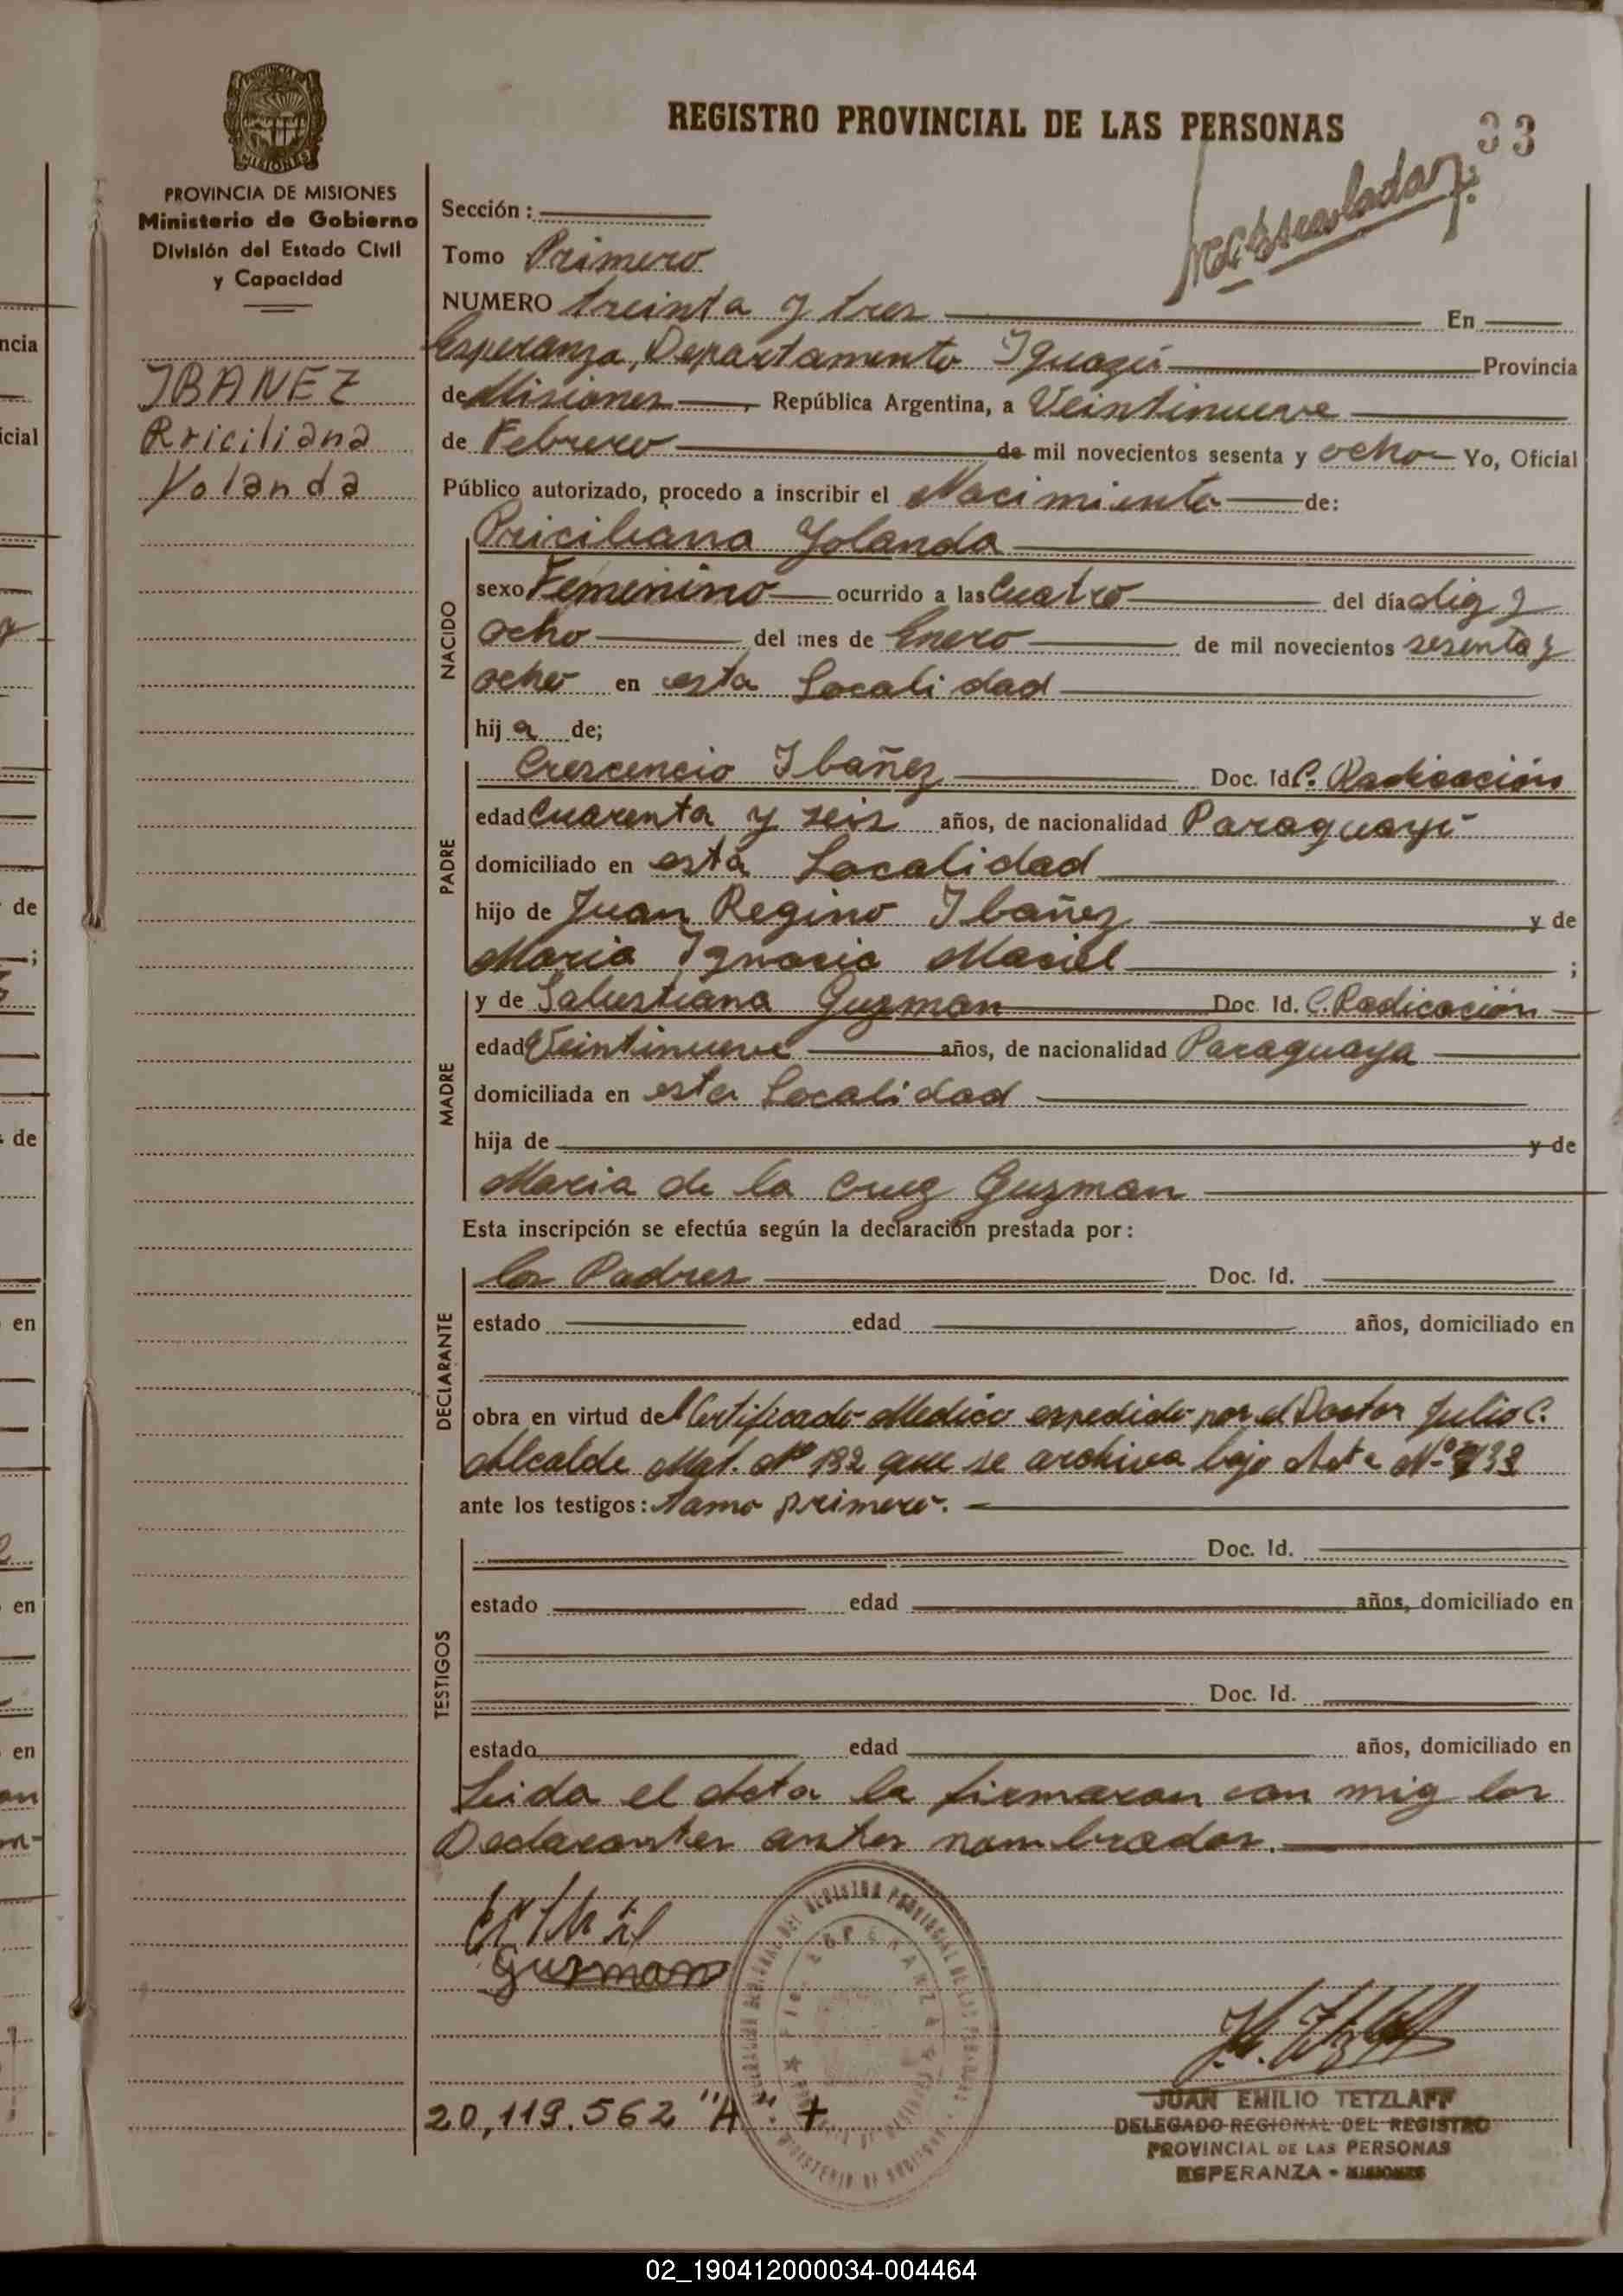 REGISTRO PROVINCIAL DE LAS PERSONAS
33
PROVINCIA DE MISIONES
Ministerio de Gobierno
División del Estado Civil
y Capacidad
IBANEZ
Priciliana
Yolanda
Sección :
Tomo Primero
NUMERO treinta y tres En
Esperanza, Departamento Iguazú Provincia
de Misiones, República Argentina, a Veintinueve
de Febrero de mil novecientos sesenta y ocho Yo, Oficial
Público autorizado, procedo a inscribir el Nacimiento de:
Priciliana Yolanda
NACIDO
sexo Femenino ocurrido a las Cuatro del día diez y
ocho del mes de Enero de mil novecientos sesenta y
ocho en esta Localidad
hija de;
PADRE
Crescencio Ibañez Doc. Id C. Radicación
edad Cuarenta y seis años, de nacionalidad Paraguayo
domiciliado en esta Localidad
hijo de Juan Regino Ibañez y de
Maria Ignacia Maciel ;
MADRE
y de Salustiana Guzman Doc. Id. C. Radicación
edad Veintinueve años, de nacionalidad Paraguaya
domiciliada en esta Localidad
hija de y de
Maria de la Cruz Guzman
Esta inscripción se efectúa según la declaración prestada por :
DECLARANTE
los Padres Doc. Id.
estado edad años, domiciliado en
obra en virtud del Certificado Medico expedido por el Doctor Julio C.
Alcalde Mat. Nº 132 que se archiva bajo Acta Nº 33
ante los testigos : tomo primero.
TESTIGOS
Doc. Id.
estado edad años, domiciliado en
Doc. Id.
estado edad años, domiciliado en
Leida el Acta la firmaron con mig los
Declarantes antes nombrados.
Guzman
20,119.562 "A" +
JUAN EMILIO TETZLAFF
DELEGADO REGIONAL DEL REGISTRO
PROVINCIAL DE LAS PERSONAS
ESPERANZA - MISIONES
02_190412000034-004464